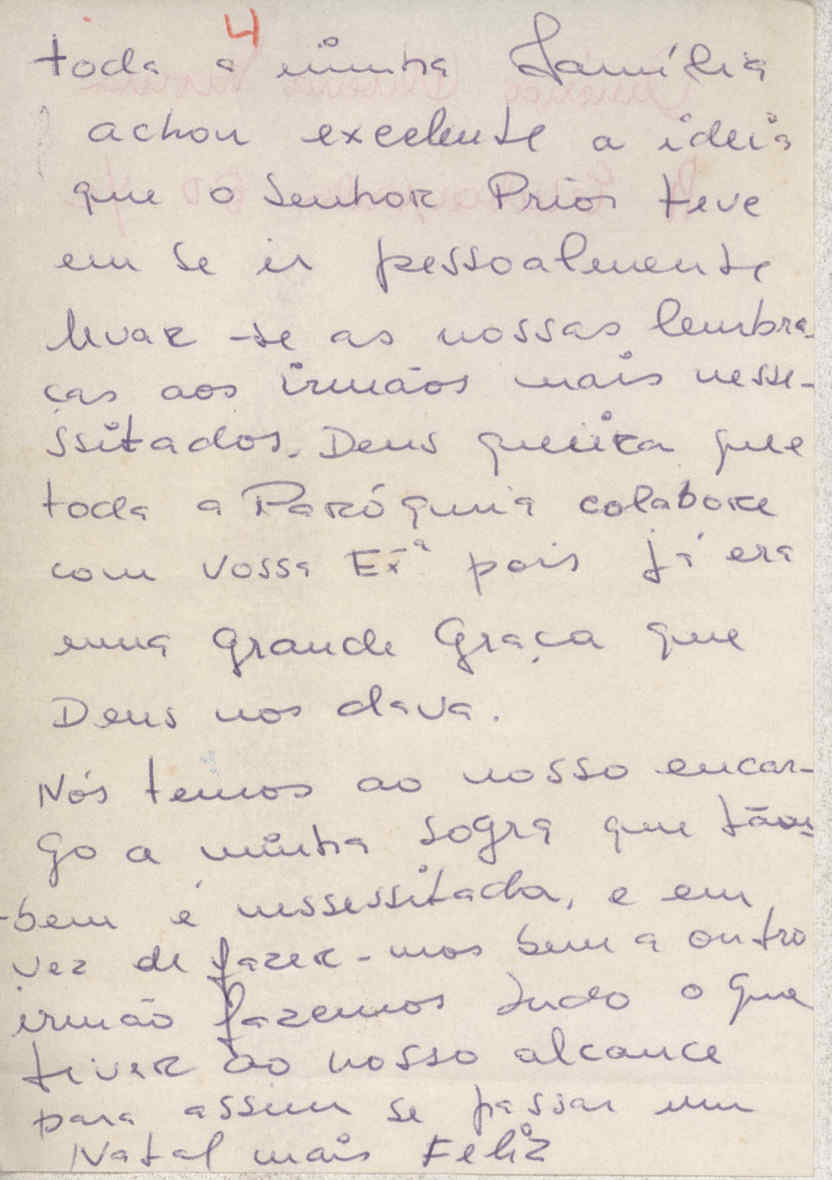 4
toda a minha família
achou excelente a ideia
que o Senhor Prior teve
em se ir pessoalmente
levar-se as nossas lembra-
ças aos irmãos mais nesse-
ssitados. Deus queira que
toda a Paróquia colabore
com vossa Exª pois já era
uma grande Graça que
Deus nos dava.
Nós temos ao nosso encar-
go a minha sogra que tãm-
-bem é nessessitada, e em
vez de fazer-mos bem a outro
irmão fazemos tudo o que
tiver ao nosso alcance
para assim se passar um
Natal mais Feliz